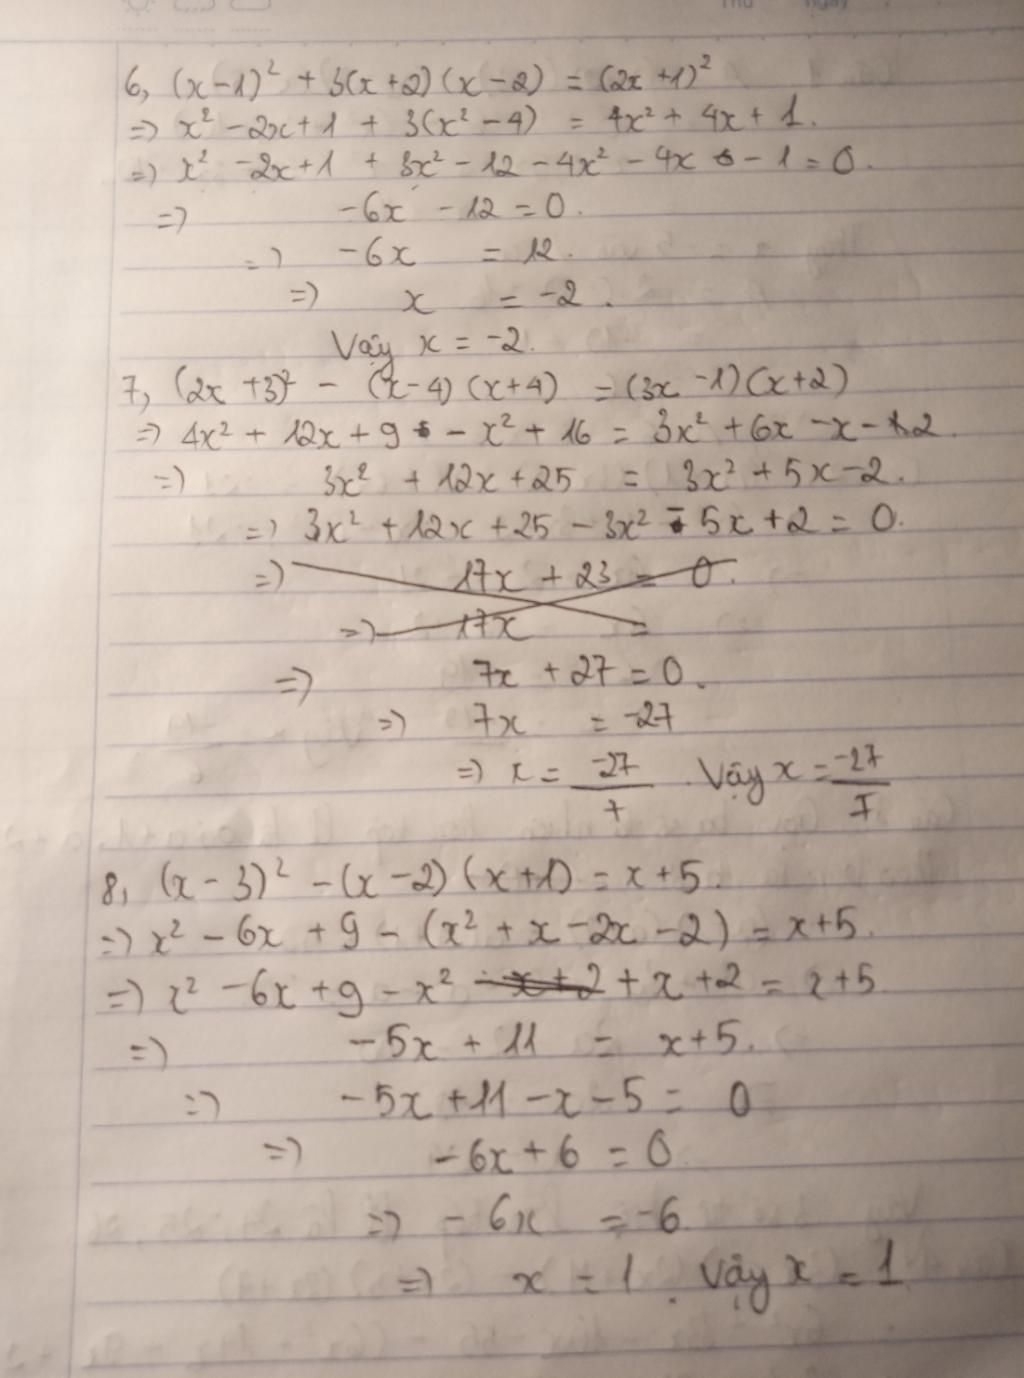 Thứ Ngày
6, (x-1)² + 3(x+2)(x-2) = (2x+1)²
=> x² - 2x+1 + 3(x² - 4) = 4x² + 4x + 1.
=> x² - 2x+1 + 3x² - 12 - 4x² - 4x - 1 = 0.
=> -6x - 12 = 0.
=> -6x = 12.
=> x = -2.
Vậy x = -2.
7, (2x +3)² - (x-4)(x+4) = (3x -1)(x+2)
=> 4x² + 12x + 9 - x² + 16 = 3x² + 6x - x - 2.
=> 3x² + 12x + 25 = 3x² + 5x - 2.
=> 3x² + 12x + 25 - 3x² - 5x + 2 = 0.
=> 17x + 23 = 0.
=> 17x =
=> 7x + 27 = 0.
=> 7x = -27
=> x = -27/7. Vậy x = -27/7
8, (x - 3)² - (x - 2)(x+1) = x+5.
=> x² - 6x + 9 - (x² + x - 2x - 2) = x+5.
=> x² - 6x + 9 - x² - x + 2 + x + 2 = x+5
=> -5x + 11 = x+5.
=> -5x + 11 - x - 5 = 0
=> -6x + 6 = 0
=> -6x = -6
=> x = 1. Vậy x = 1